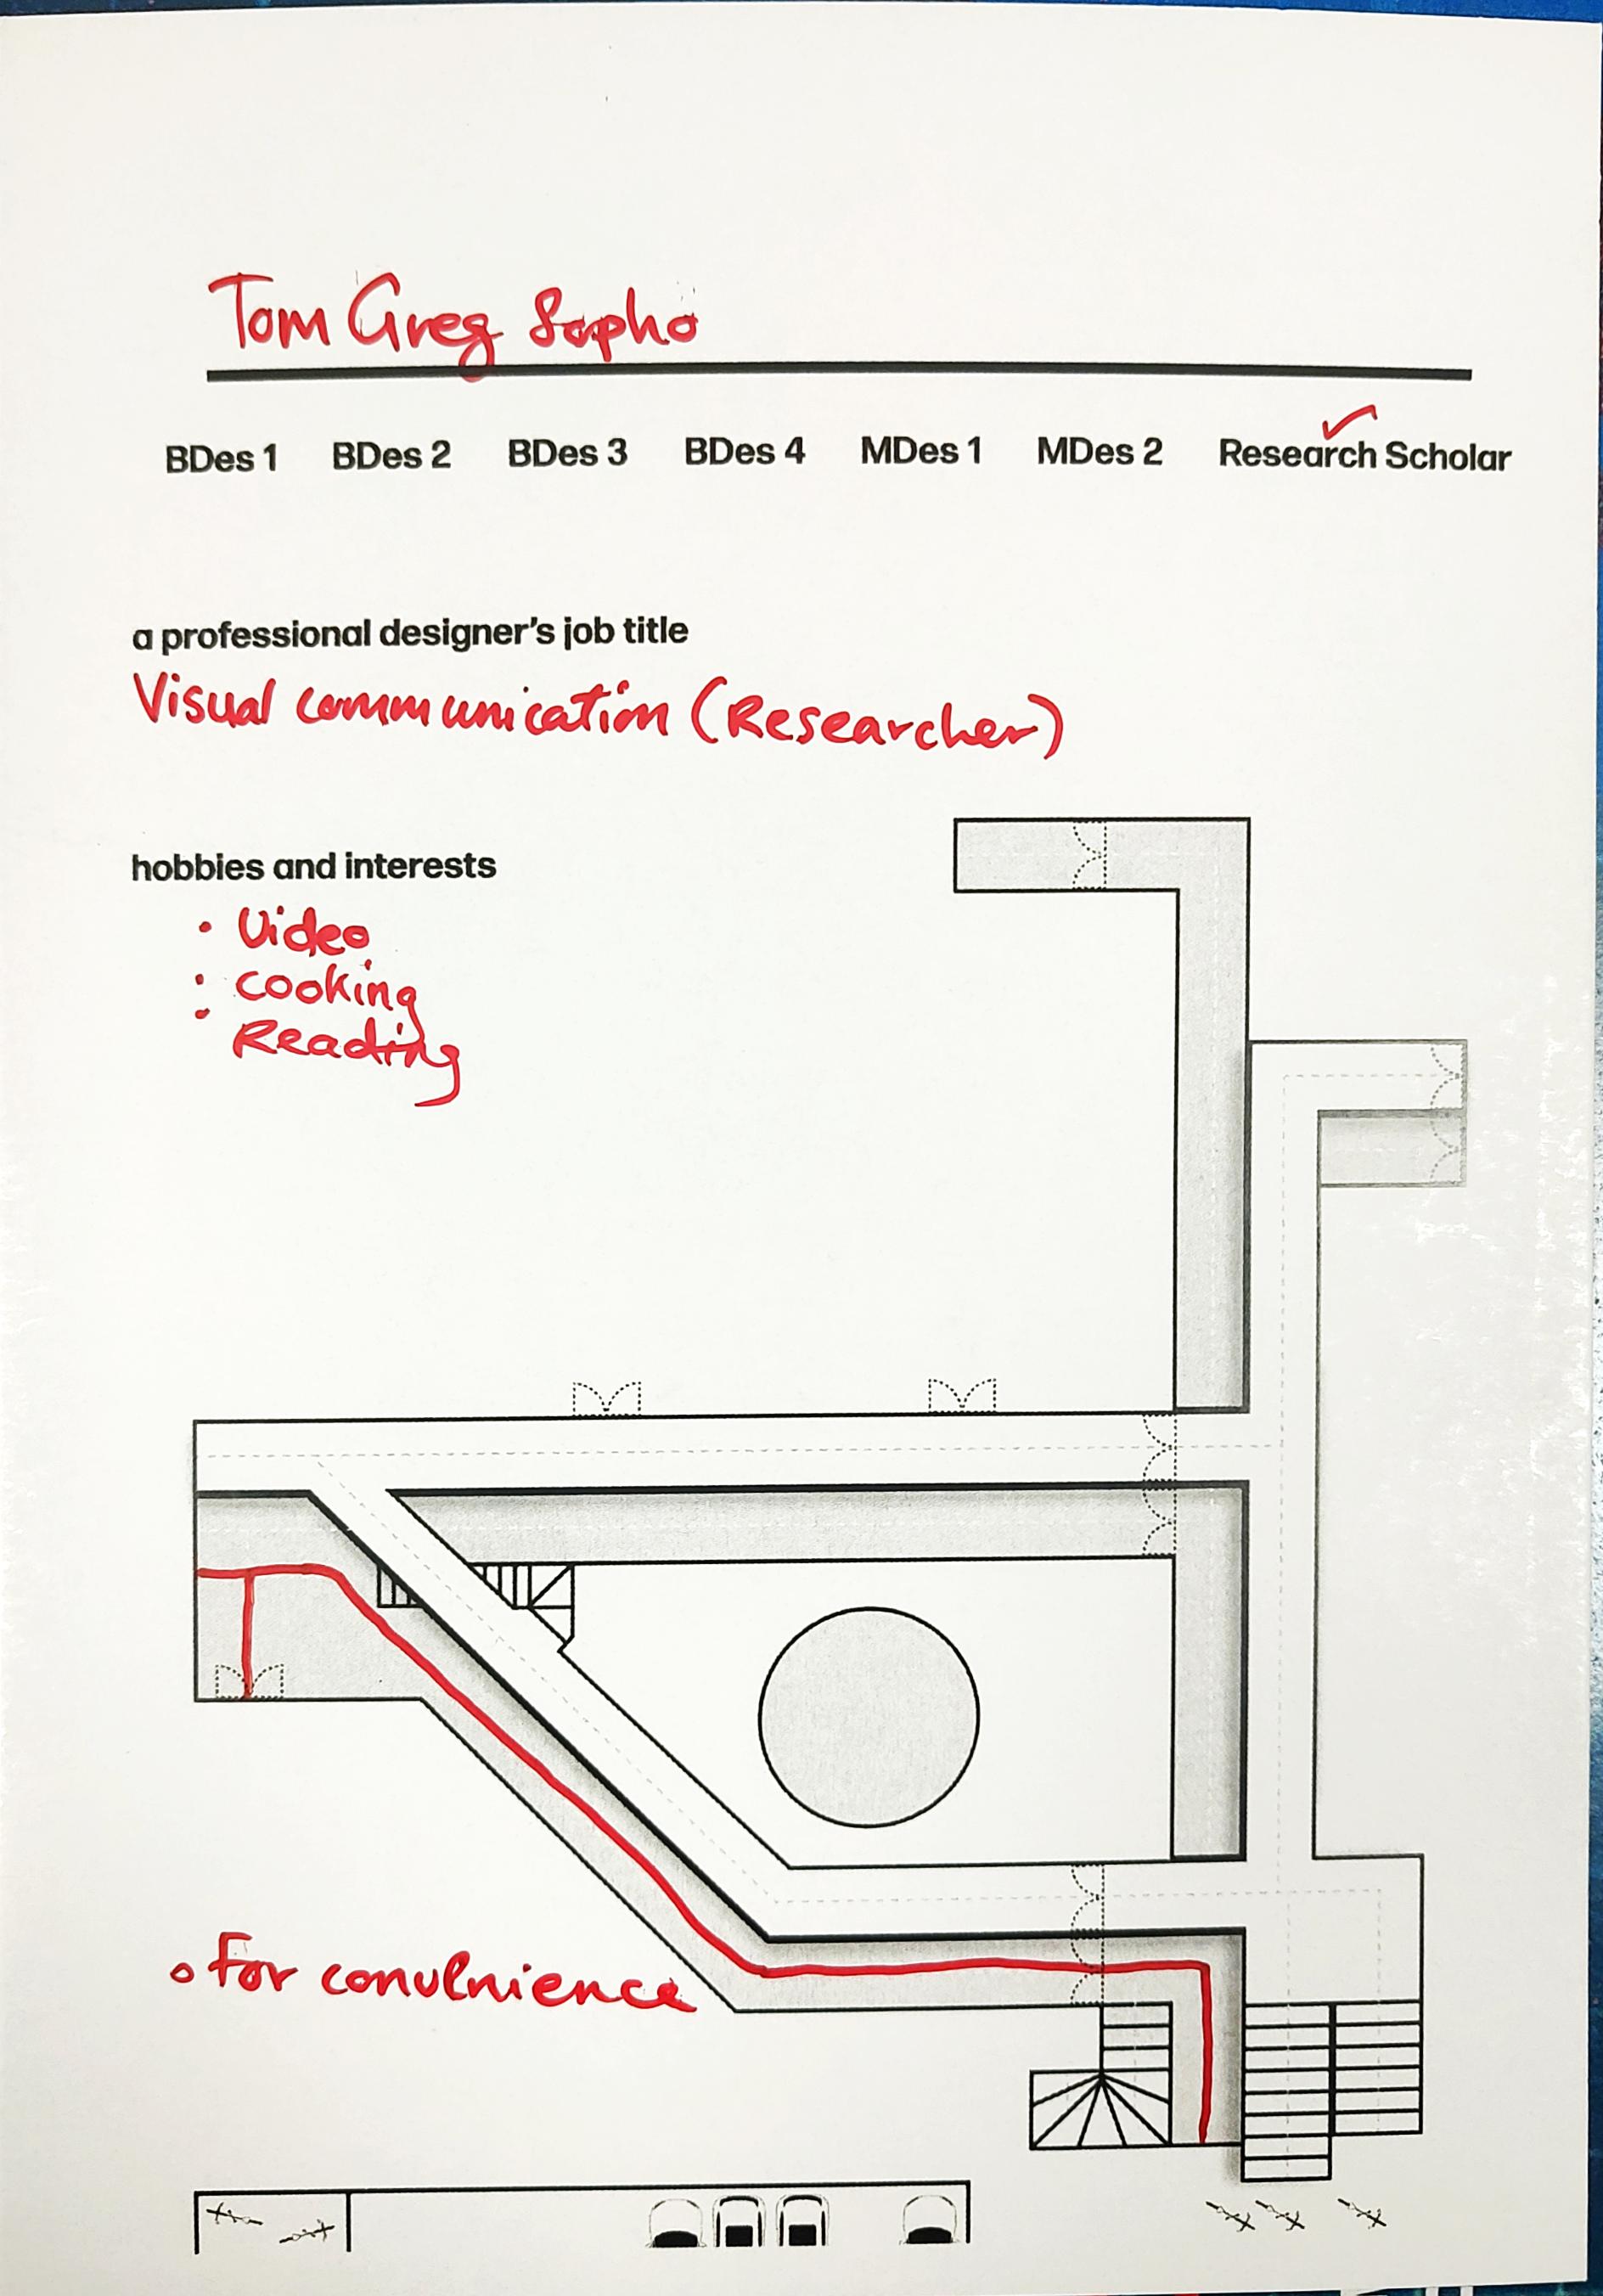 Tom Greg Sopho
BDes 1 BDes 2 BDes 3 BDes 4 MDes 1 MDes 2 Research Scholar
a professional designer's job title
Visual communication (Researcher)
hobbies and interests
• Video
• cooking
• Reading
• For convenience